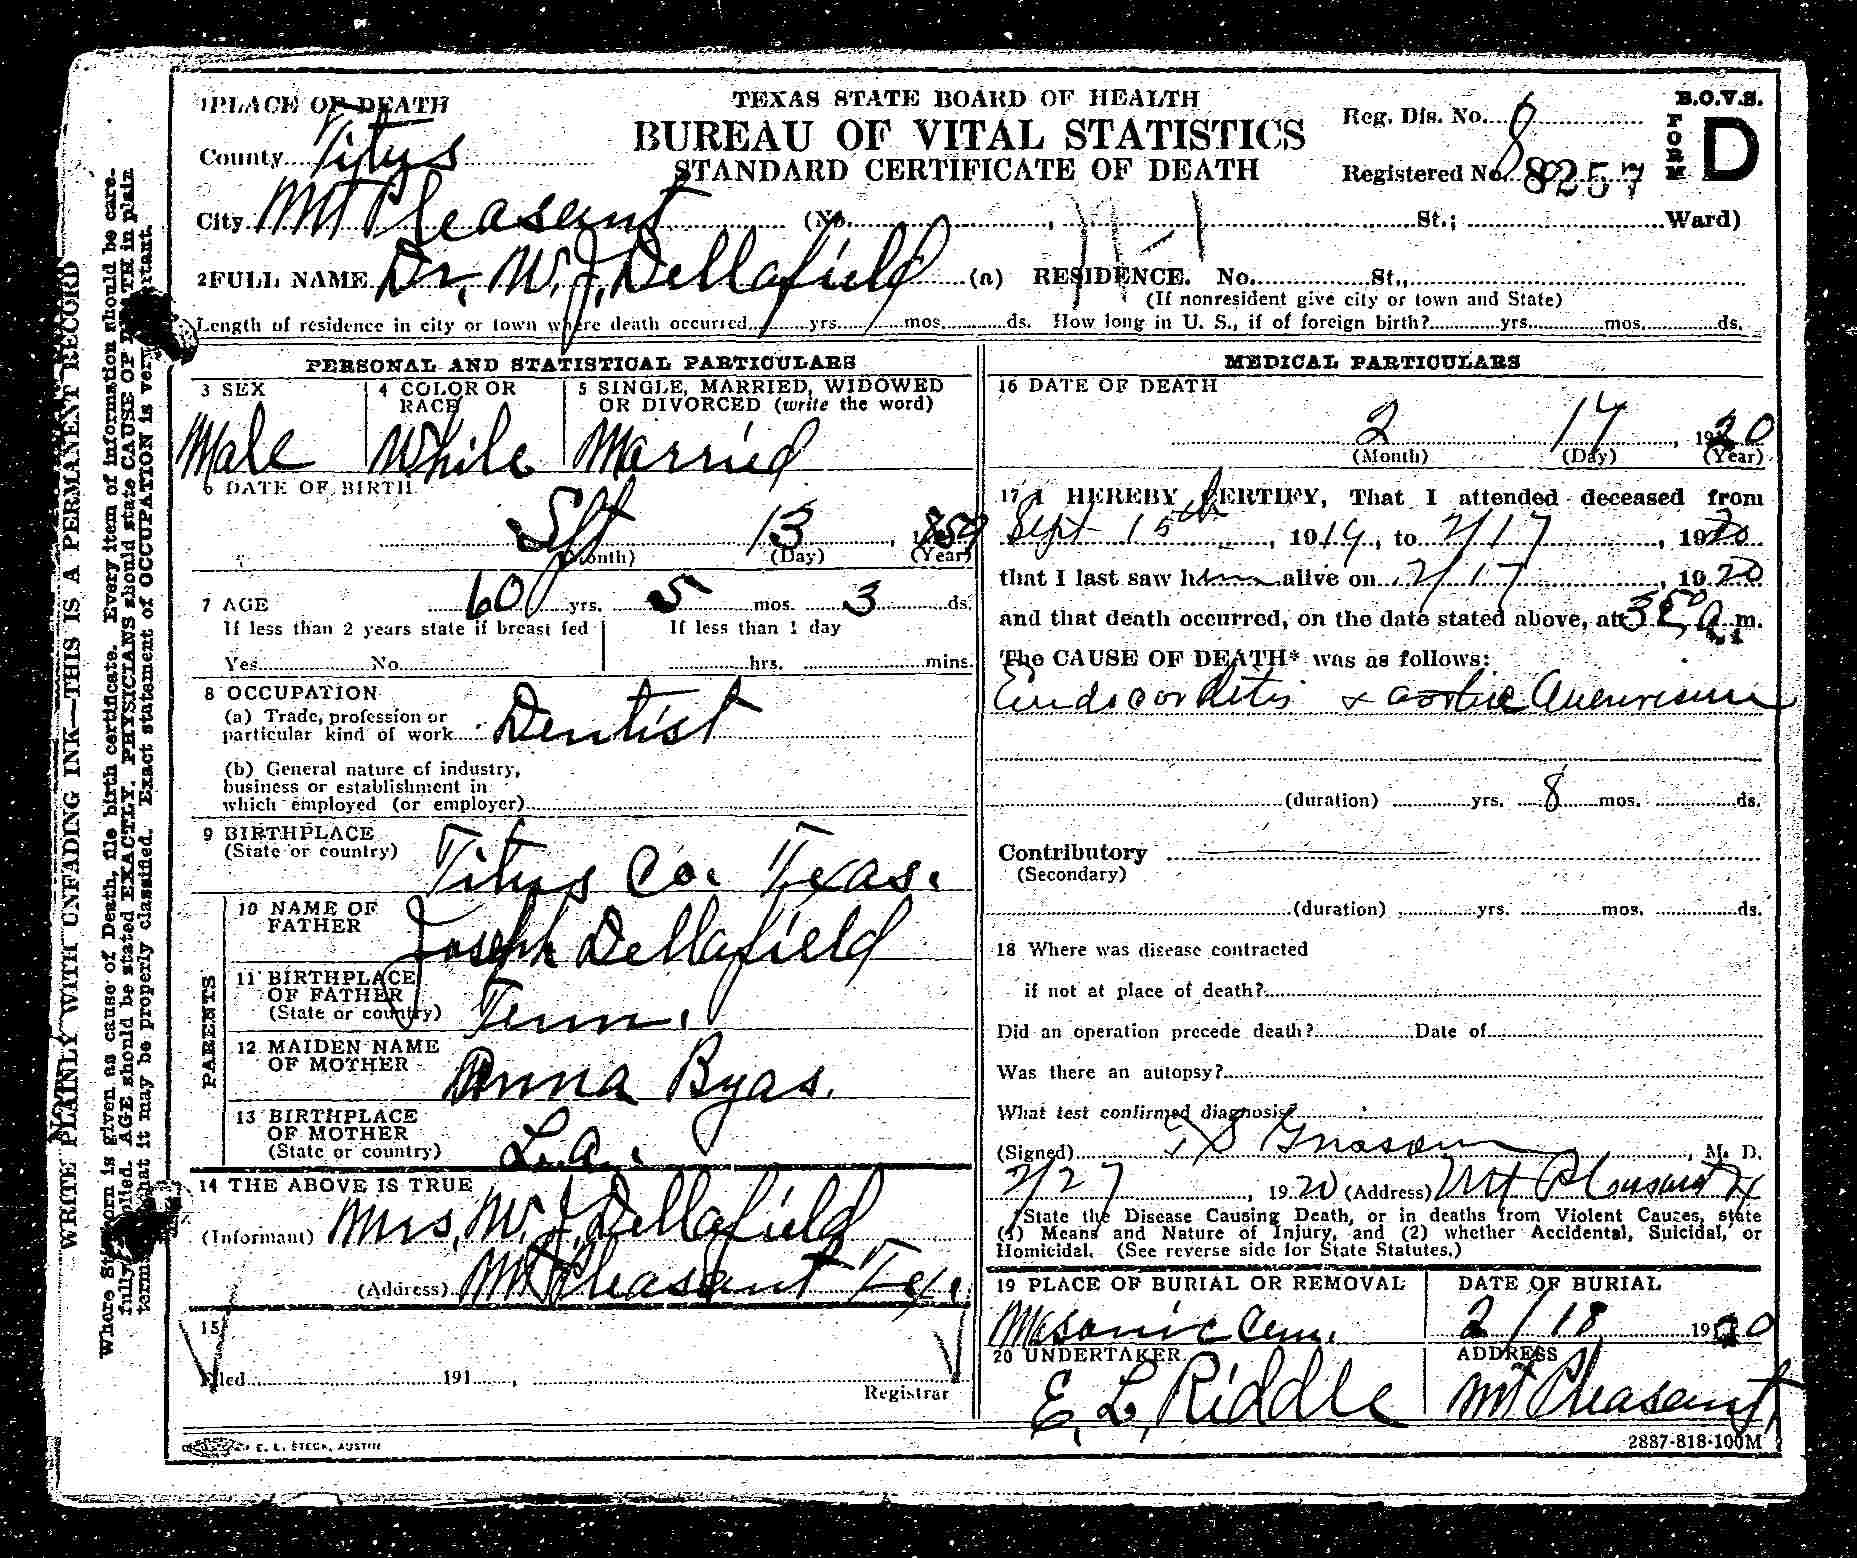 TEXAS STATE BOARD OF HEALTH
BUREAU OF VITAL STATISTICS
STANDARD CERTIFICATE OF DEATH
B.O.V.S.
FORM D
Reg. Dis. No.
Registered No. 8257
1 PLACE OF DEATH
County Titus
City Mt Pleasant (No. , St.; Ward)
2 FULL NAME Dr. W. J. Dellafield (a) RESIDENCE. No. St.,
(If nonresident give city or town and State)
Length of residence in city or town where death occurred yrs. mos. ds. How long in U. S., if of foreign birth? yrs. mos. ds.
PERSONAL AND STATISTICAL PARTICULARS
3 SEX
Male
4 COLOR OR RACE
While
5 SINGLE, MARRIED, WIDOWED
OR DIVORCED (write the word)
Married
6 DATE OF BIRTH
Spt 13, 1859
(Month) (Day) (Year)
7 AGE 60 yrs. 5 mos. 3 ds.
If less than 2 years state if breast fed If less than 1 day
Yes No hrs. mins.
8 OCCUPATION
(a) Trade, profession or
particular kind of work Dentist
(b) General nature of industry,
business or establishment in
which employed (or employer)
9 BIRTHPLACE
(State or country) Titus Co. Texas.
PARENTS
10 NAME OF
FATHER Joseph Dellafield
11 BIRTHPLACE
OF FATHER
(State or country) Tenn.
12 MAIDEN NAME
OF MOTHER Anna Byas.
13 BIRTHPLACE
OF MOTHER
(State or country) La.
14 THE ABOVE IS TRUE
(Informant) Mrs. W. J. Dellafield
(Address) Mt Pleasant Tex.
15
Filed 191 ,
Registrar
E. L. STECK, AUSTIN
MEDICAL PARTICULARS
16 DATE OF DEATH
2 17, 1920
(Month) (Day) (Year)
17 I HEREBY CERTIFY, That I attended deceased from
Sept 15th, 1919, to 2/17, 1920
that I last saw him alive on 2/17, 1920
and that death occurred, on the date stated above, at a.m.
The CAUSE OF DEATH* was as follows:
Endocarditis & aortic Aneurism
(duration) yrs. 8 mos. ds.
Contributory
(Secondary)
(duration) yrs. mos. ds.
18 Where was disease contracted
if not at place of death?
Did an operation precede death? Date of
Was there an autopsy?
What test confirmed diagnosis?
(Signed) , M. D.
2/27, 1920 (Address) Mt Pleasant Tx
*State the Disease Causing Death, or in deaths from Violent Causes, state
(1) Means and Nature of Injury, and (2) whether Accidental, Suicidal, or
Homicidal. (See reverse side for State Statutes.)
19 PLACE OF BURIAL OR REMOVAL
Masonic Cem.
DATE OF BURIAL
2/18 1920
20 UNDERTAKER
E. L. Riddle
ADDRESS
Mt Pleasant,
2887-818-100M
WRITE PLAINLY WITH UNFADING INK—THIS IS A PERMANENT RECORD
Where Stillborn is given as cause of Death, file birth certificate. Every item of information should be care-
fully supplied. AGE should be stated EXACTLY. PHYSICIANS should state CAUSE OF DEATH in plain
terms, that it may be properly classified. Exact statement of OCCUPATION is very important.